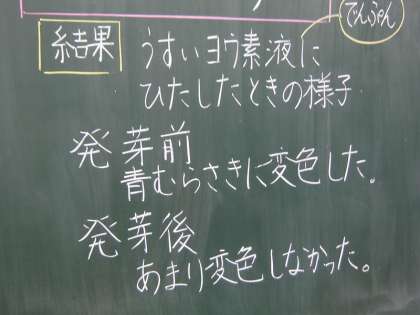 でんぷん
結果 うすいヨウ素液に
ひたしたときの様子
発芽前
青むらさきに変色した。
発芽後
あまり変色しなかった。